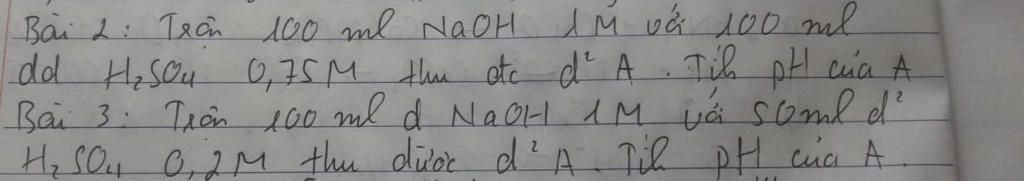 Bài 2: Trộn 100 ml NaOH 1M với 100 ml
dd H₂SO₄ 0,75M thu đtc d² A. Tíh pH của A
Bài 3: Trộn 100 ml d NaOH 1M với 50ml d²
H₂SO₄ 0,2M thu được d² A. Tíh pH của A.